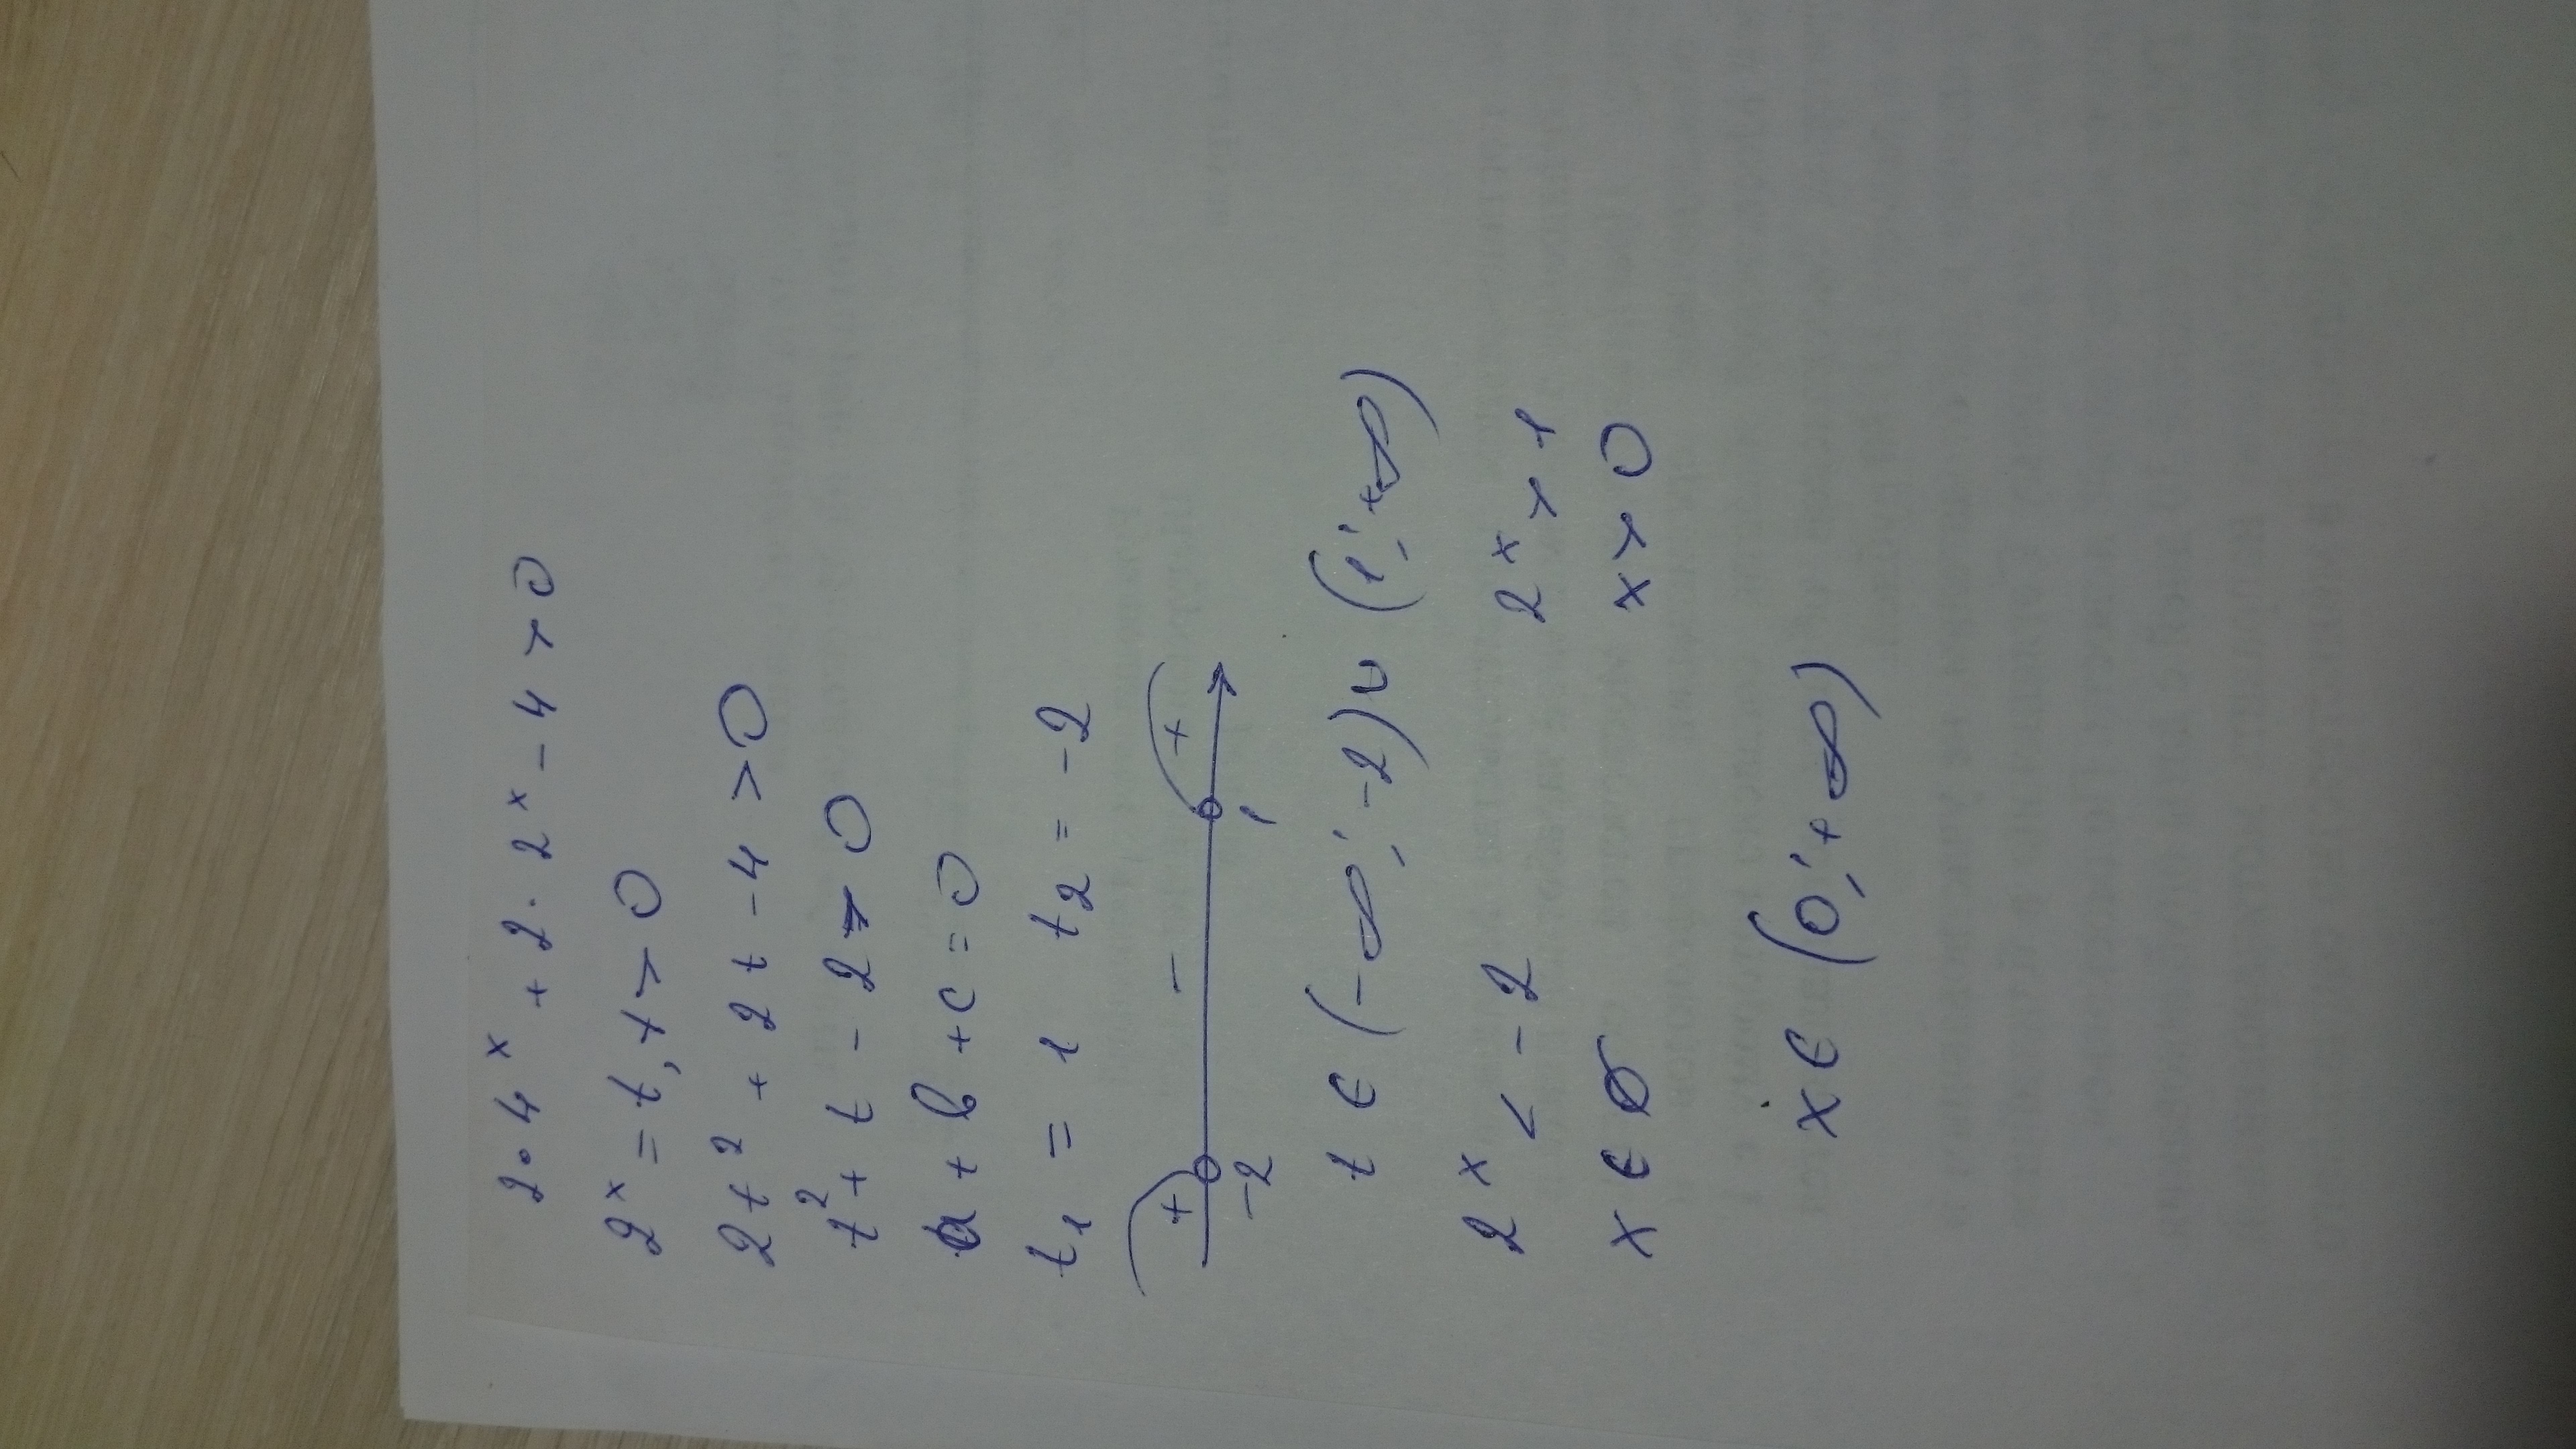 2·4ˣ + 2·2ˣ - 4 > 0
2ˣ = t, t > 0
2t² + 2t - 4 > 0
t² + t - 2 > 0
a + b + c = 0
t₁ = 1 t₂ = -2
+ - +
-2 1
t ∈ (-∞; -2) ∪ (1; +∞)
2ˣ < -2 2ˣ > 1
x ∈ ∅ x > 0
x ∈ (0; +∞)